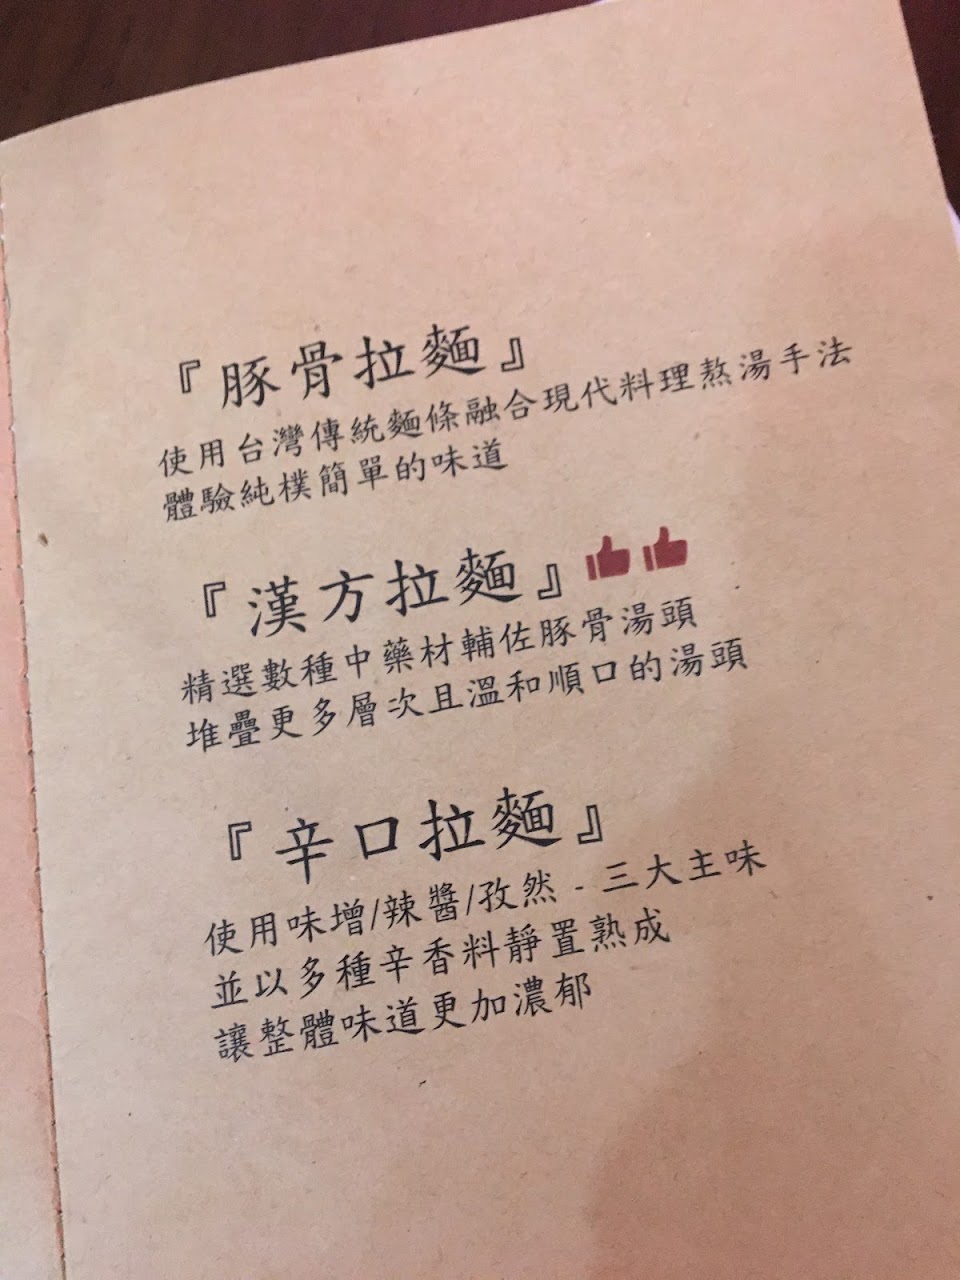 『豚骨拉麵』
使用台灣傳統麵條融合現代料理熬湯手法
體驗純樸簡單的味道
『漢方拉麵』
精選數種中藥材輔佐豚骨湯頭
堆疊更多層次且溫和順口的湯頭
『辛口拉麵』
使用味增/辣醬/孜然 - 三大主味
並以多種辛香料靜置熟成
讓整體味道更加濃郁